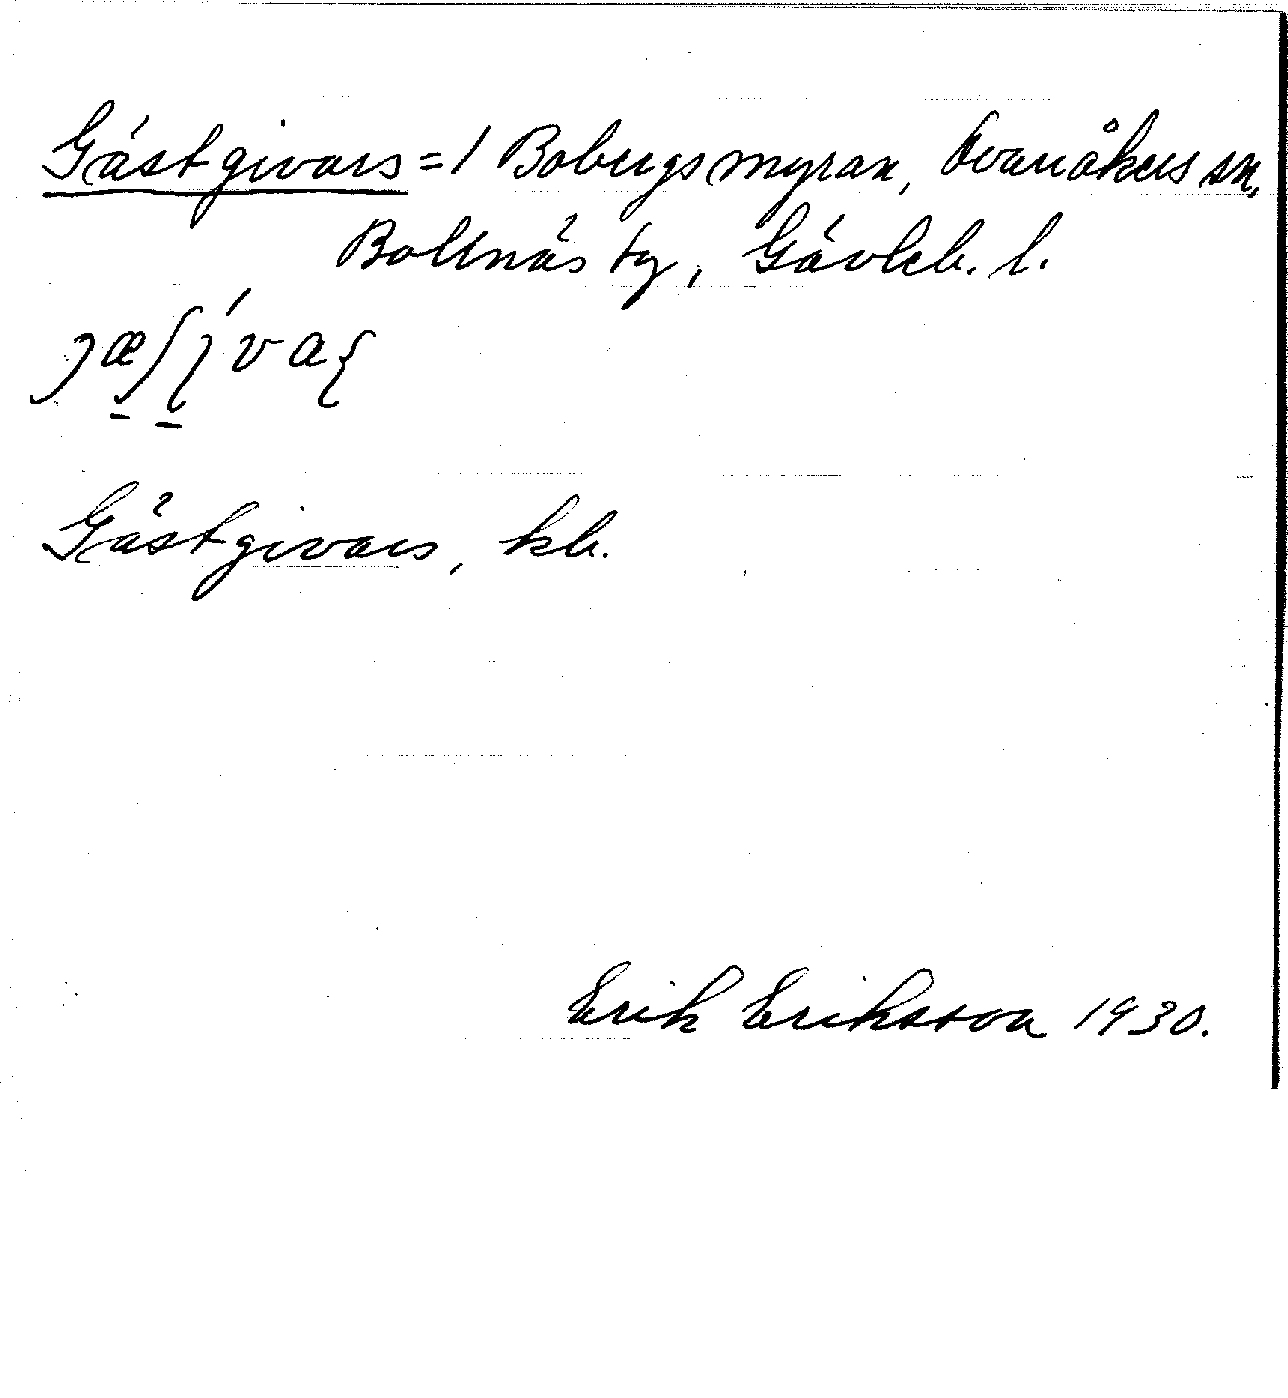 Gästgivars = 1 Bobergsmyran, Ovanåkers sn,
Bollnäs tg, Gävleb. l.
Gästgivars, kb.
Erik Eriksson 1930.